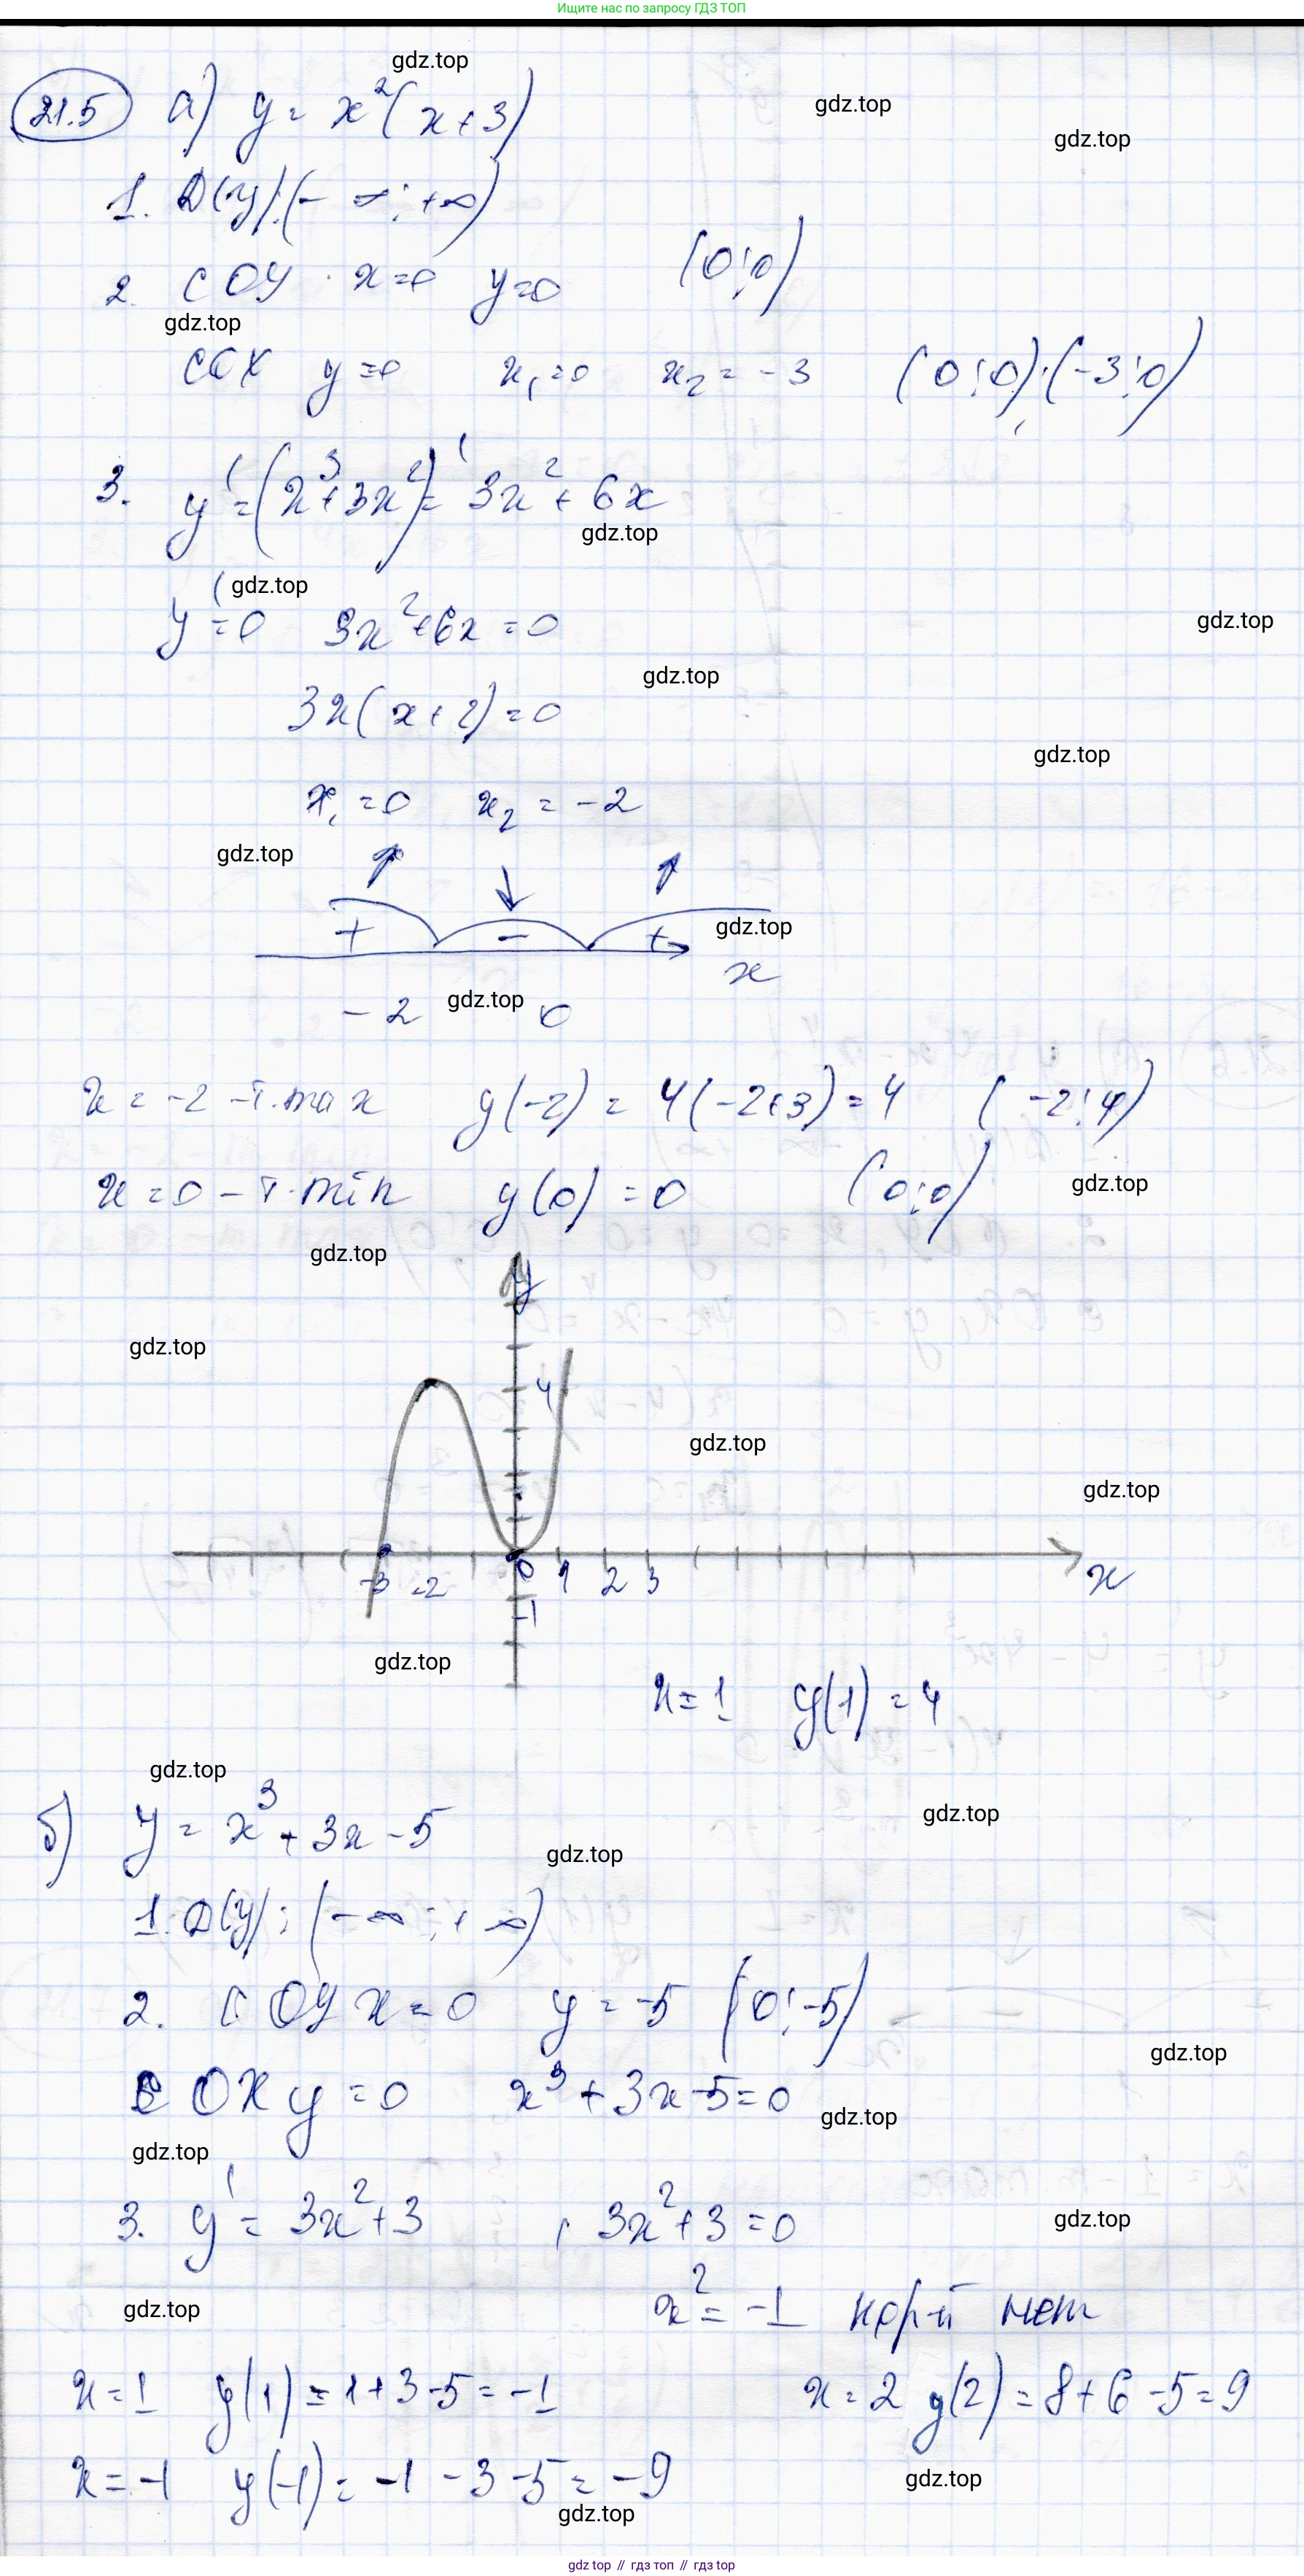 Ищите нас по запросу ГДЗ ТОП
gdz.top
21.5 а) y = x²(x+3)
gdz.top
gdz.top
1. D(y):(-∞;+∞)
2. С OY x=0 y=0 (0;0)
gdz.top
С OX y=0 x₁=0 x₂=-3 (0;0);(-3;0)
3. y'=(x³+3x²)'=3x²+6x
gdz.top
gdz.top
y'=0 3x²+6x=0
gdz.top
gdz.top
3x(x+2)=0
gdz.top
x₁=0 x₂=-2
gdz.top
+ - + gdz.top
x
-2 gdz.top 0
x=-2 -т.max y(-2)=4(-2+3)=4 (-2;4)
x=0 -т.min y(0)=0 (0;0) gdz.top
gdz.top
y
gdz.top
4
gdz.top
gdz.top
-3 -2 0 1 2 3 x
-1
gdz.top
x=1 y(1)=4
gdz.top
gdz.top
б) y=x³+3x-5
gdz.top
1. D(y):(-∞;+∞)
2. С OY x=0 y=-5 (0;-5)
gdz.top
С OX y=0 x³+3x-5=0
gdz.top
gdz.top
3. y'=3x²+3 , 3x²+3=0
gdz.top
gdz.top
x²=-1 кор-й нет
x=1 y(1)=1+3-5=-1 x=2 y(2)=8+6-5=9
x=-1 y(-1)=-1-3-5=-9
gdz.top
gdz.top
gdz top // гдз топ // гдз top